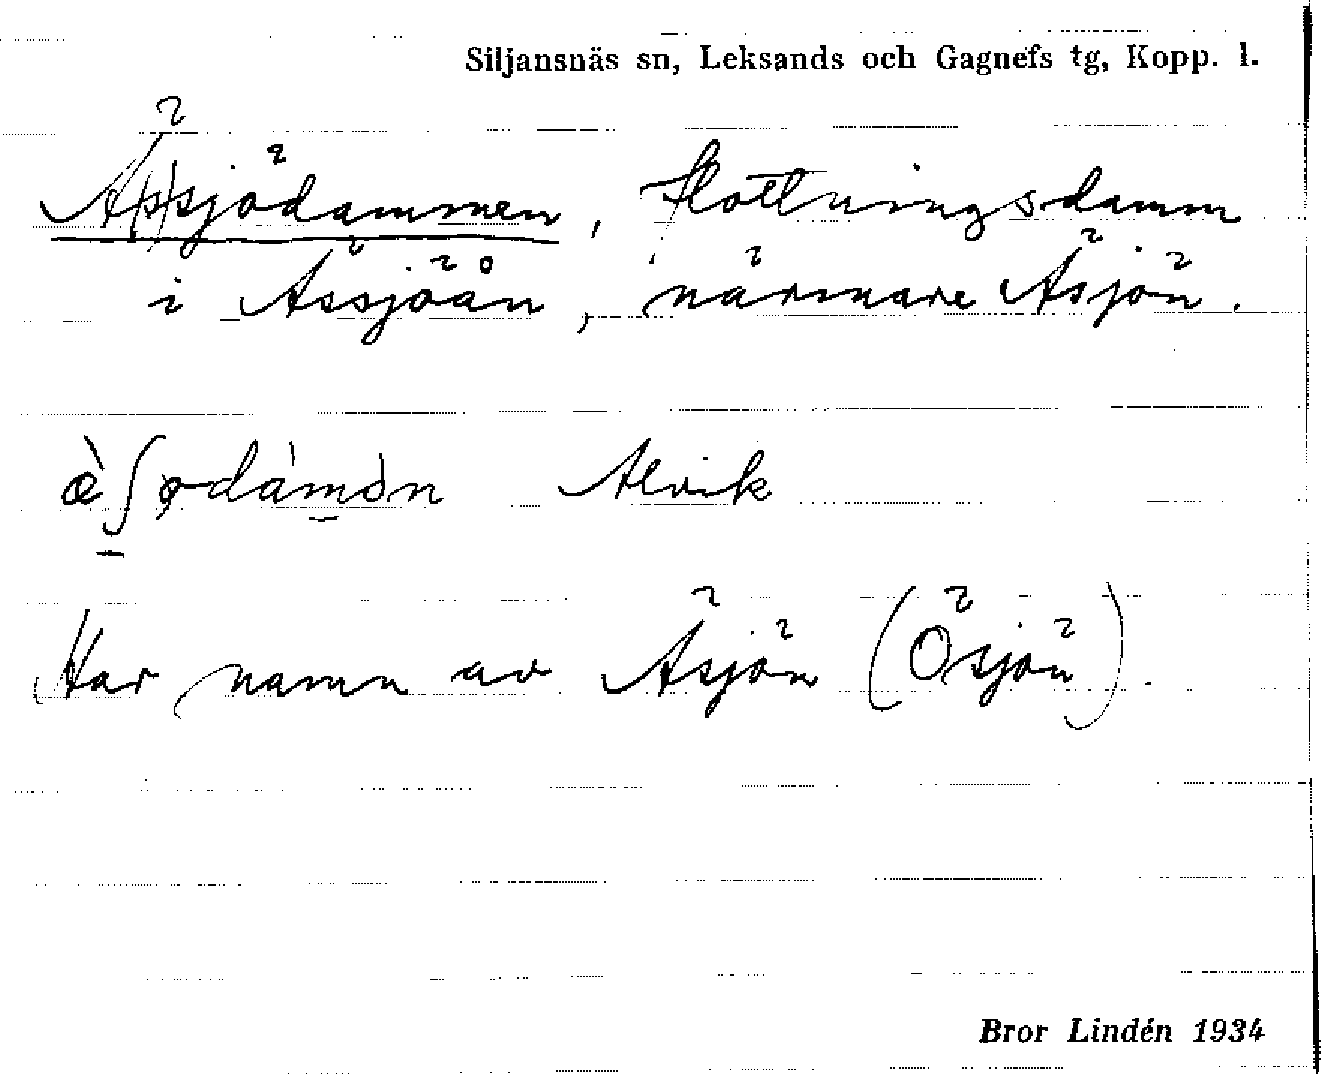 Siljansnäs sn, Leksands och Gagnefs tg, Kopp. l.
Äsjödammen, flottningsdamm
i Ässjöån, närmare Äsjön.
Alvik
Har namn av Äsjön (Ösjön).
Bror Lindén 1934